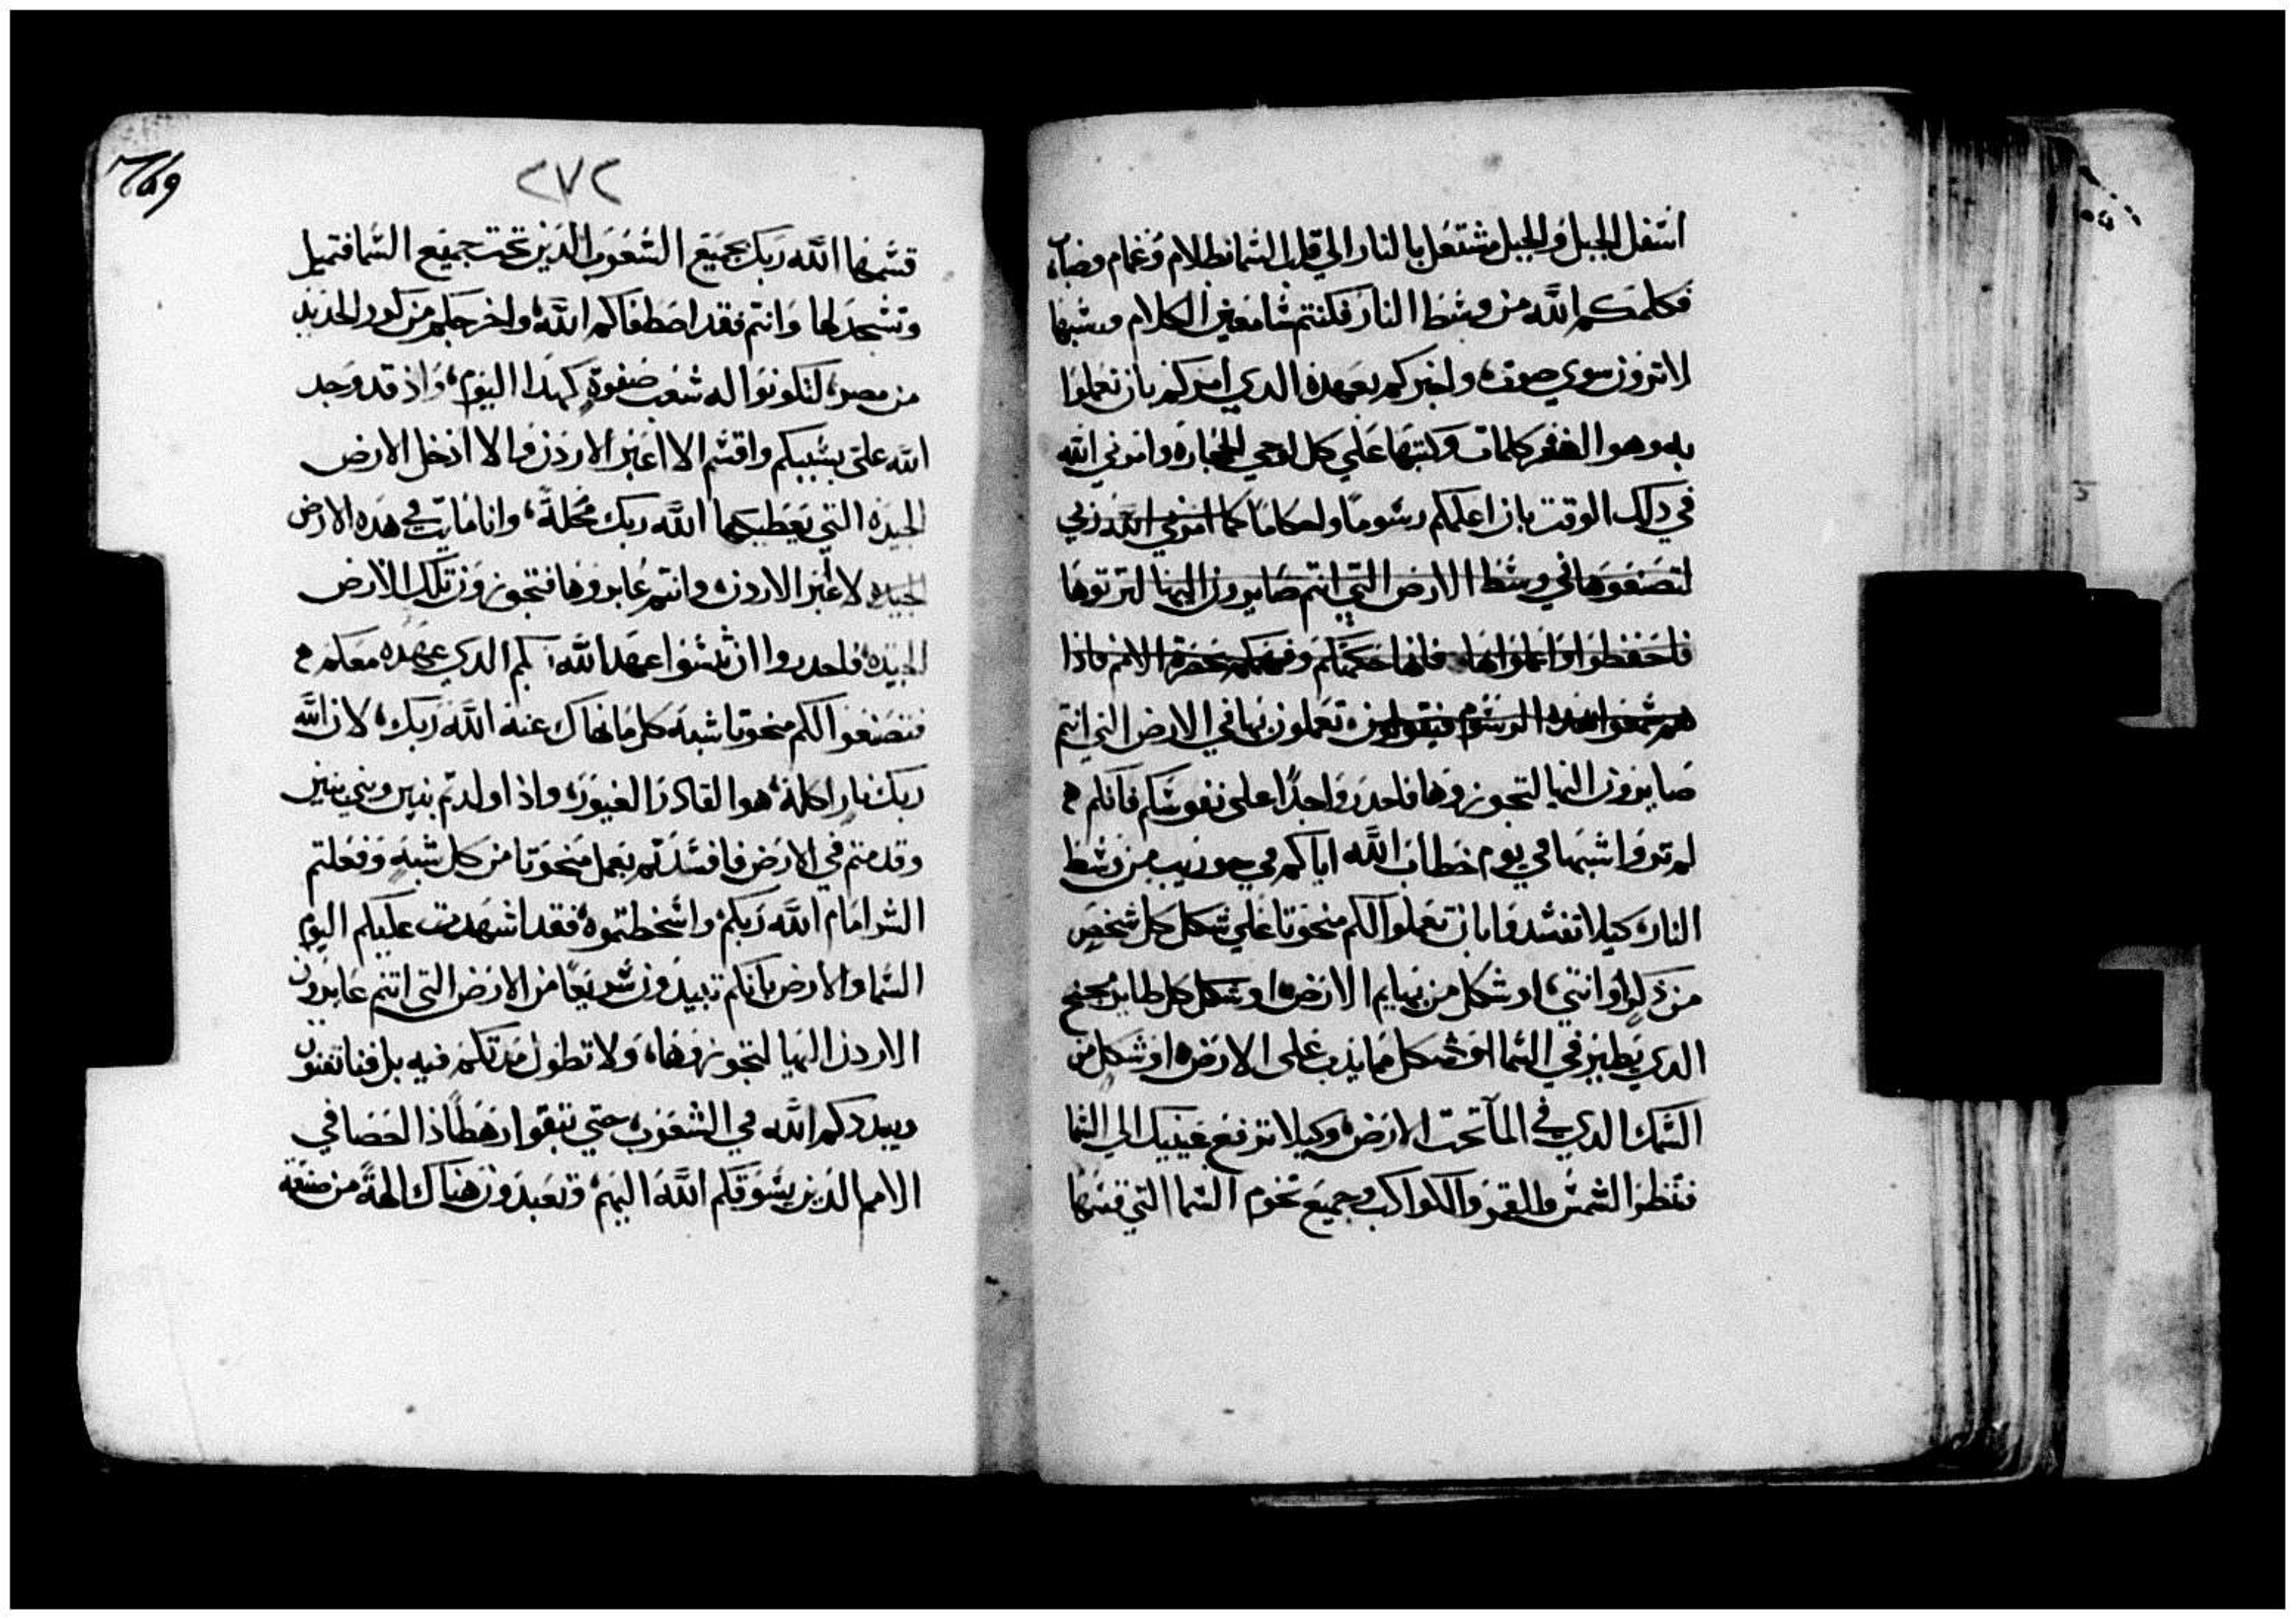 اسفل الجبل والجبل مشتعل بالنار الي قلب السما بظلام وغمام وضباب
فكلمكم الله من وسط النار فكنتم سامعين الكلام وشبها
لا ترون سوي صوت، واخبركم بعهده الدي امركم بان تعملوا
به وهو العشر كلمات وكتبها علي كل لوحي الحجاره وامرني الله
في دلك الوقت بان اعلمكم رسوما واحكاما كما امرني الله ربي
لتصنعوها في وسط الارض التي انتم صايرون اليها لترثوها
فاحفظوا واعملوا بها فانها حكمتكم وفهمكم بحضرة الامم فاذا
هم سمعوا هذه الرسوم فيقولون تعملون بها في الارض التي انتم
صايرون اليها لتجوزوها فاحدروا جدًا علي نفوسكم فانكم
لم تروا شبها في يوم خطاب الله اياكم في حوريب من وسط
النار، كيلا تفسدوا بان تعملوا لكم منحوتا علي شكل كل شخص
من دكر او انثي، او شكل من بهايم الارض، او شكل كل طاير مجنح
الدي يطير في السما او شكل ما يدب علي الارض، او شكل من
السمك الدي في المآ تحت الارض، وكيلا ترفع عينيك الي السما
فتنظر الشمس والقمر والكواكب وجميع نجوم السما التي قسمها
٢٧٢
قسمها الله ربك لجميع الشعوب الدين تحت جميع السما فتميل
وتسجد لها وانتم فقد اصطفاكم الله، واخرجكم من كور الحديد
من مصر، لتكونوا له شعب صفوة كهدا اليوم، واذ قد وجد
الله علي بسببكم واقسم الا اعبر الاردن والا ادخل الارض
الجيده التي يعطيكها الله ربك محلة، وانا مايت في هده الارض
الجيده لا أعبر الاردن، وانتم عابروها فتجوزون تلك الارض
الجيده فاحدروا ان تنسوا عهد الله ربكم الدي عهده معكم
فتصنعوا لكم منحوتا شبه كل ما نهاك عنه الله ربك، لان الله
ربك نار اكله، هو القادر الغيور، واذا اولدتم بنين وبني بنين
وقدمتم في الارض فافسدتم بعمل منحوتا من كل شبه وفعلتم
الشر امام الله ربكم، واسخطتموه، فقد اشهدت عليكم اليوم
السما والارض بانكم تبيدون سريعًا من الارض التي انتم عابرون
الاردن اليها لتجوزوها، ولا تطول مدتكم فيه بل فنا تفنون
ويبددكم الله في الشعوب، حتي تبقوا رهطًا ذا احصا في
الامم الدين يسوقكم الله اليهم، وتعبدون هناك الهة من صنعة